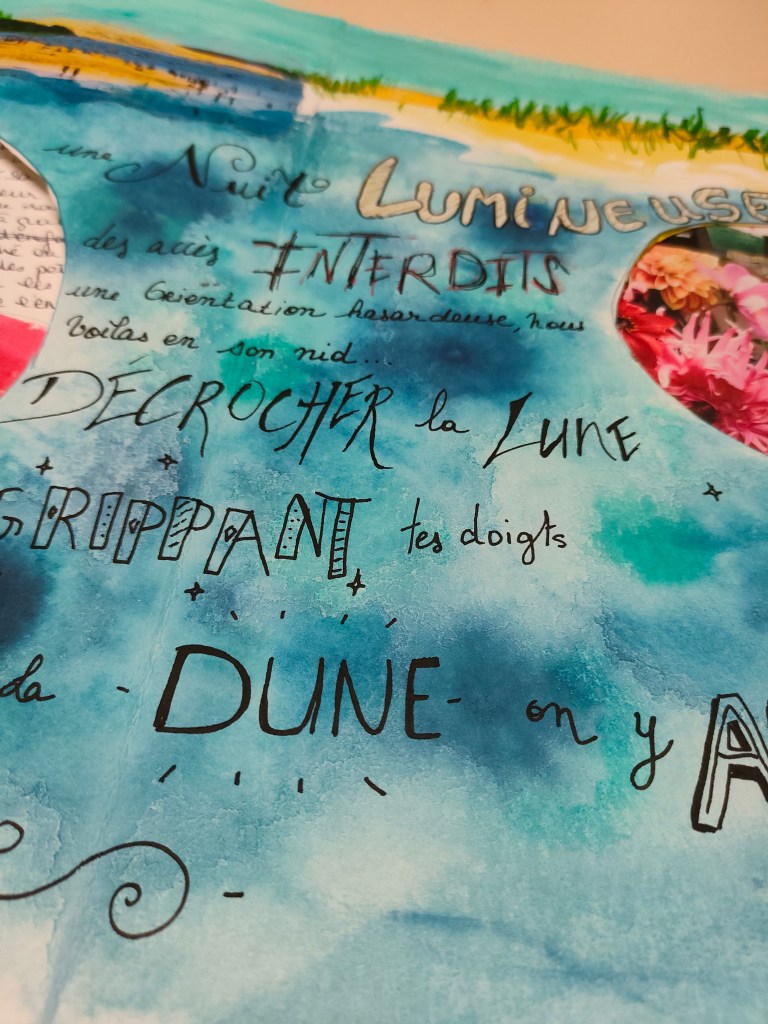 une Nuit LUMINEUSE
des accès INTERDITS
une Orientation hasardeuse, nous
voilas en son nid...
DÉCROCHER la LUNE
GRIPPANT tes doigts
la - DUNE - on y A
-